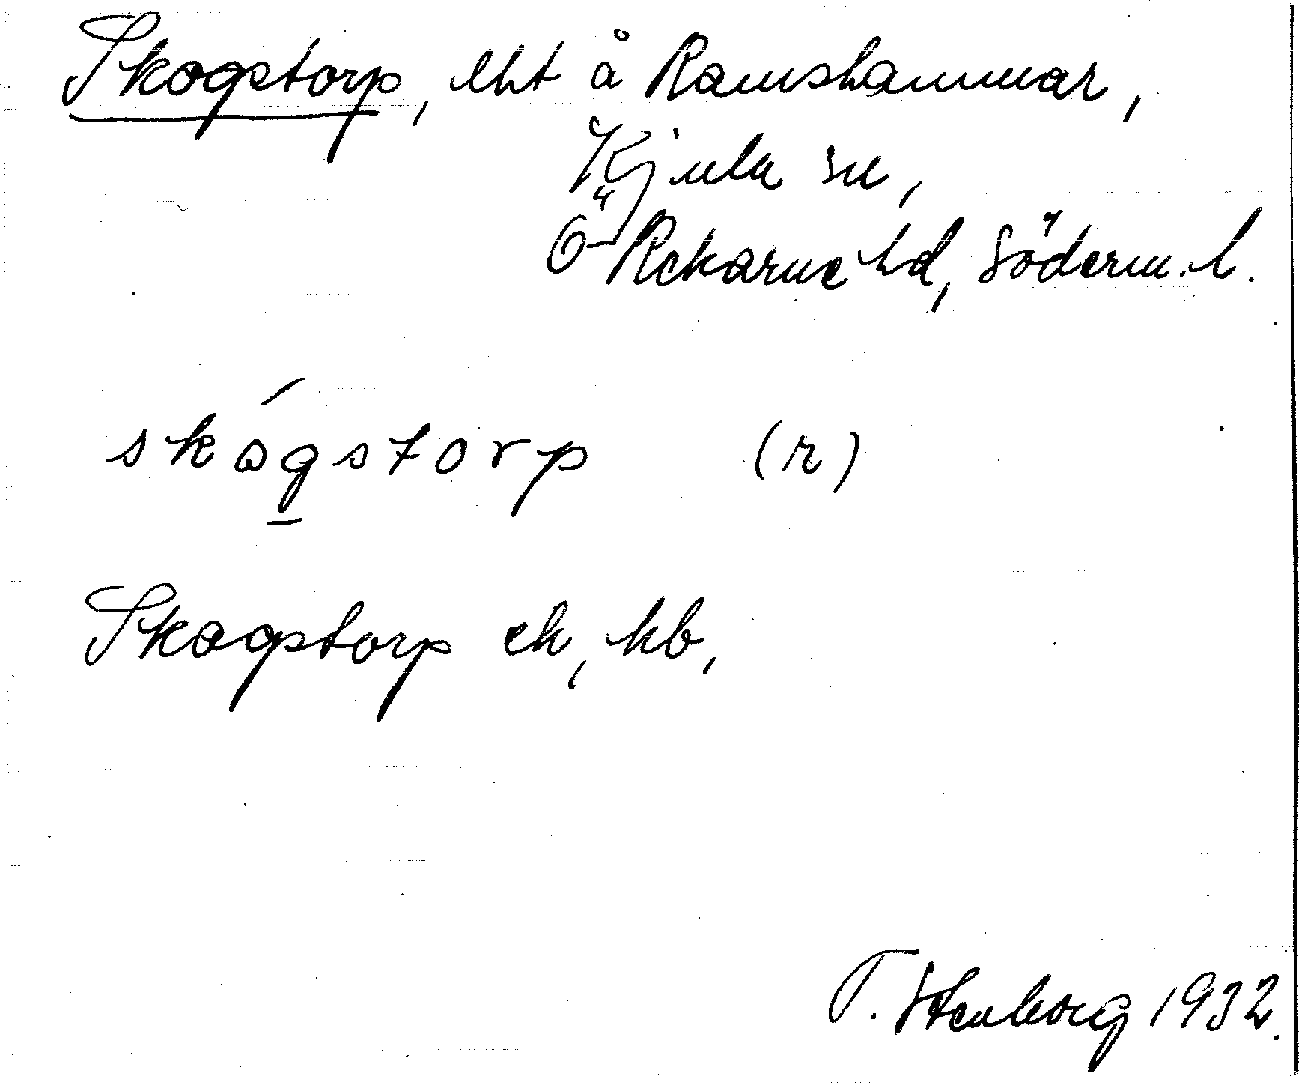 Skogstorp, lht å Ramshammar,
Kjula sn,
Ö Rekarne hd, Söderm. l.
skógstorp (r)
Skogstorp ek, kb,
T. Stenborg 1932.